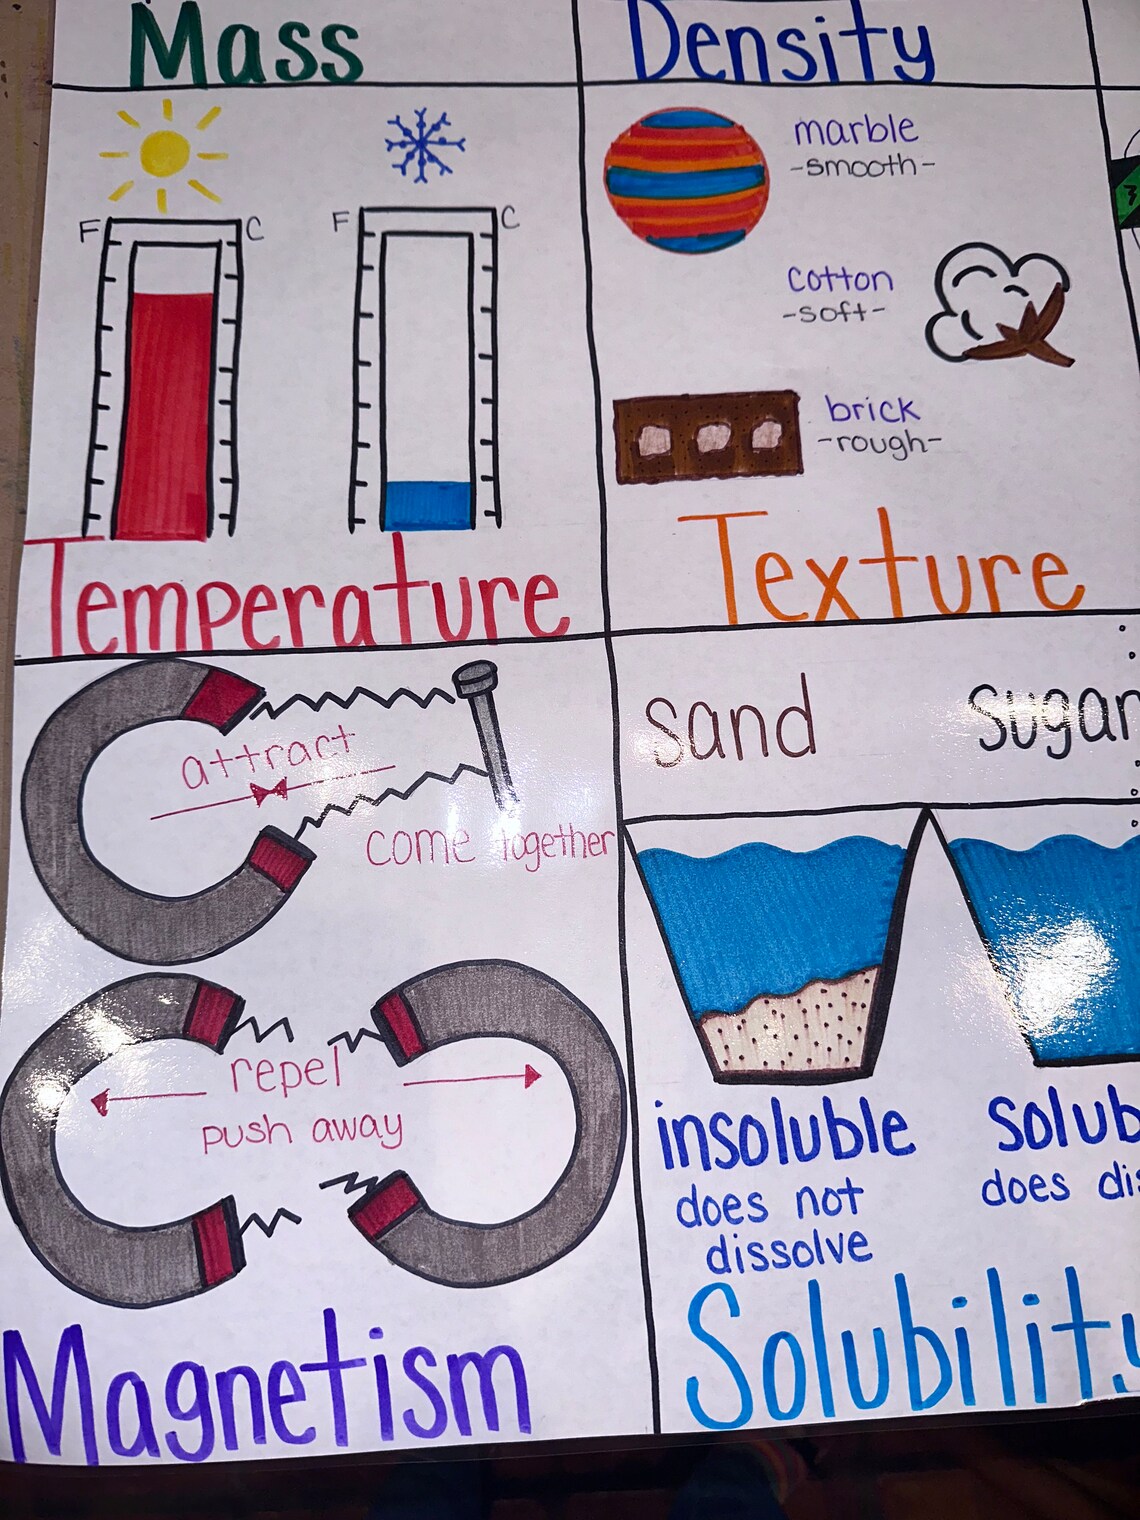 Mass
Density
F
C
F
C
Temperature
marble
-smooth-
cotton
-soft-
brick
-rough-
Texture
attract
come together
repel
push away
Magnetism
sand
sugar
insoluble
does not
dissolve
does
Solubility